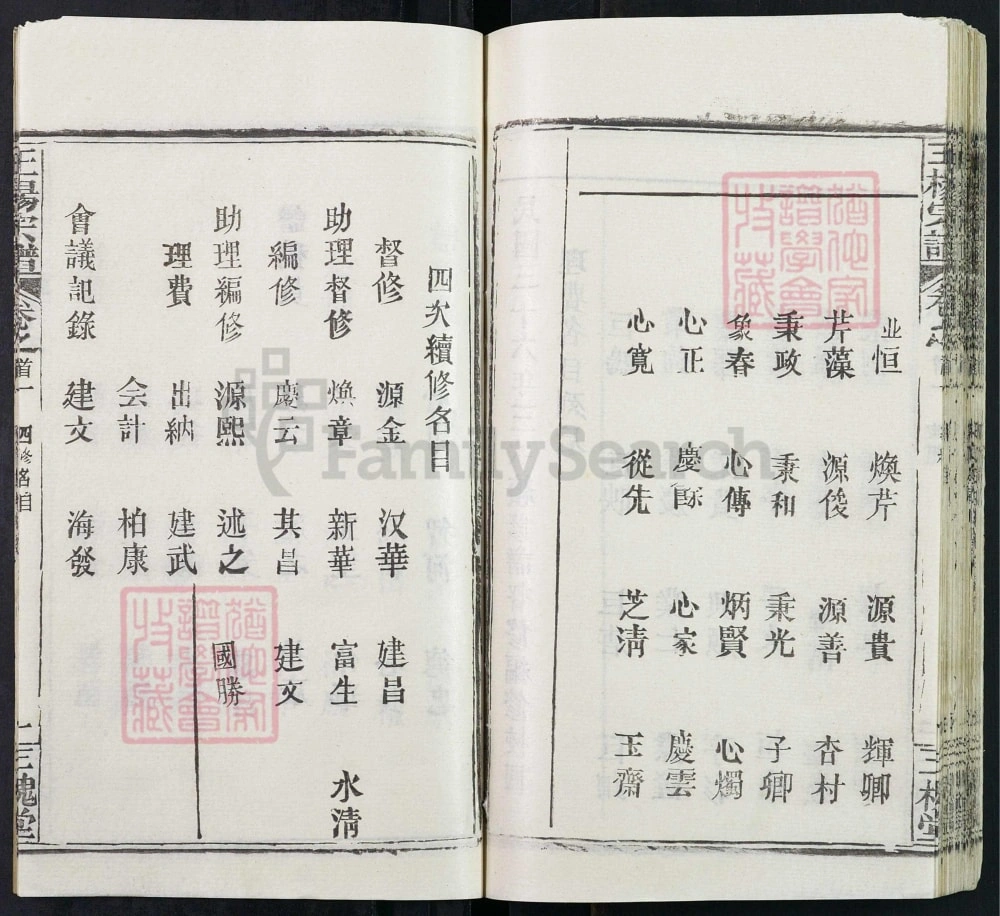 业恒 煥芹 源貴 輝卿
芹藻 源俊 源善 杏村
秉政 秉和 秉光 子卿
象春 心傳 炳賢 心燭
心正 慶酥 心家 慶雲
心寬 從先 芝清 玉齋
四次續修名目
督修 源金 汉華 建昌
助理督修 煥章 新華 富生 水清
編修 慶云 其昌 建文
助理編修 源熙 述之 國勝
理費 出納 建武
会計 柏康
會議記錄 建文 海發
王楊宗譜 卷之 首一 四修名目 三槐堂
FamilySearch